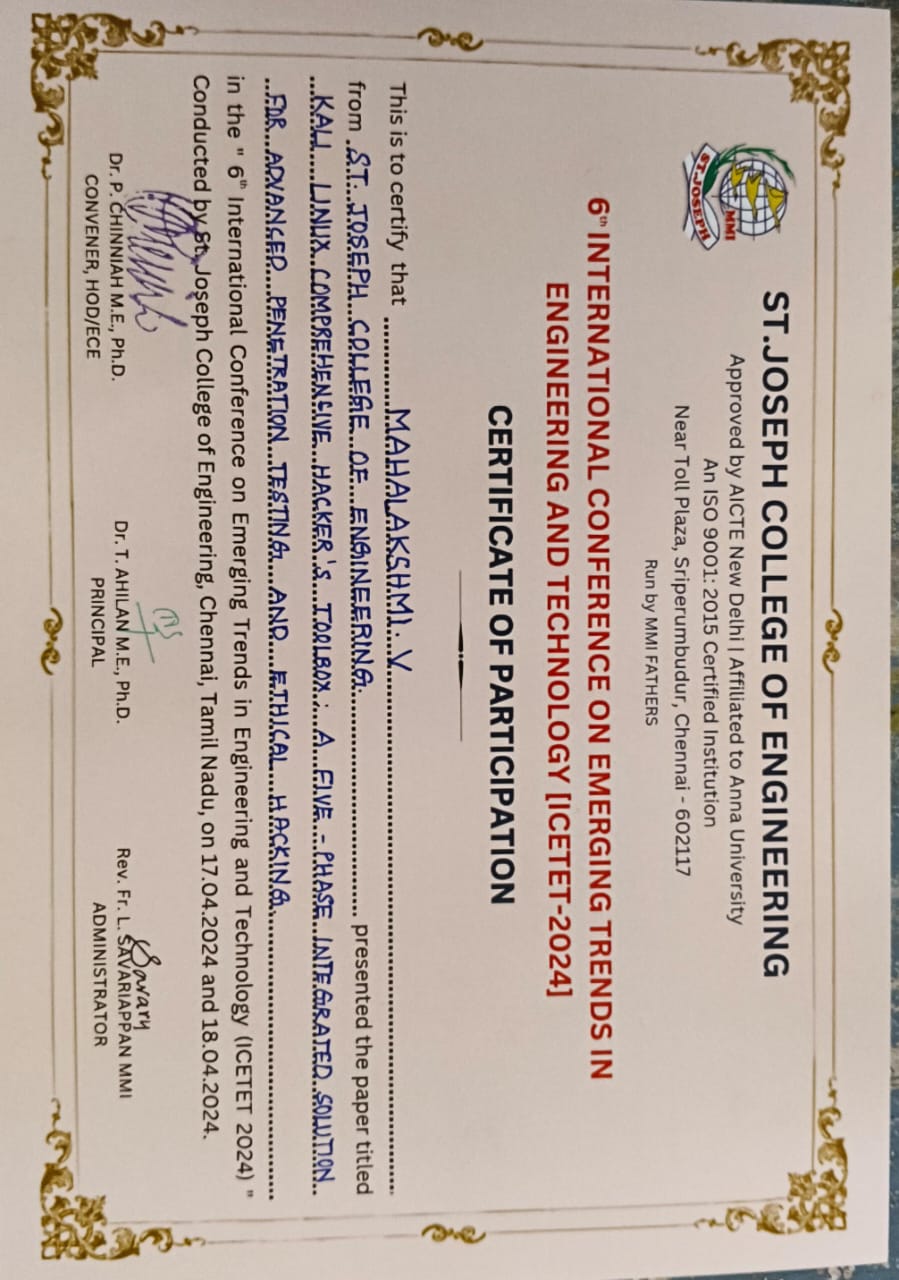 MMI
ST.JOSEPH
ST.JOSEPH COLLEGE OF ENGINEERING
Approved by AICTE New Delhi | Affiliated to Anna University
An ISO 9001: 2015 Certified Institution
Near Toll Plaza, Sriperumbudur, Chennai - 602117
Run by MMI FATHERS
6th INTERNATIONAL CONFERENCE ON EMERGING TRENDS IN
ENGINEERING AND TECHNOLOGY [ICETET-2024]
CERTIFICATE OF PARTICIPATION
This is to certify that MAHALAKSHMI. V
from ST. JOSEPH COLLEGE OF ENGINEERING. presented the paper titled
KALI LINUX COMPREHENSIVE HACKER'S TOOLBOX: A FIVE - PHASE INTEGRATED SOLUTION
FOR ADVANCED PENETRATION TESTING AND ETHICAL HACKING.
in the " 6th International Conference on Emerging Trends in Engineering and Technology (ICETET 2024) "
Conducted by St. Joseph College of Engineering, Chennai, Tamil Nadu, on 17.04.2024 and 18.04.2024.
Savary
Dr. P. CHINNIAH M.E., Ph.D. Dr. T. AHILAN M.E., Ph.D. Rev. Fr. L. SAVARIAPPAN MMI
CONVENER, HOD/ECE PRINCIPAL ADMINISTRATOR